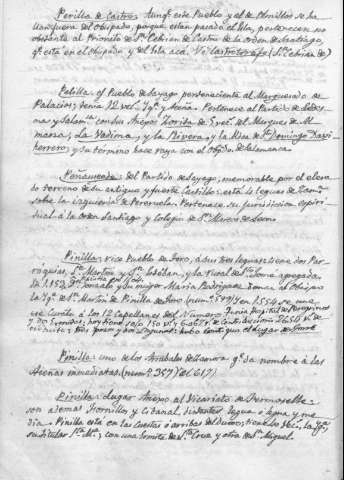 Perilla de Castro: Aunq.e este Pueblo y el de Olmillos se ha
llan fuera del Obispado, porque estan pasado el Isla, pertenecen no
obstante al Priorato de S.n Cebrian de Castro de la Orden de Santiago,
q.e está en el Obispado y del Isla acá. V.e Castrotorafe (S.n Cebrian de)
Pelilla: Pueblo de Sayago perteneciente al Marquesado de
Palacios; tiene 12 vec.s Yg.a y Aceña. Pertenece al Partido de Ledes-
ma y Salam.ca con sus Anejos Zorita de 5 vec.s del Marques de Al-
manza, La Vadima, y la Rivera, y la Alda de S.to Domingo Davi-
herrero; y su termino hace raya con el Obp.do de Salamanca
Peñausende: del Partido de Sayago, memorable por el eleva
do terreno de su antiguo y fuerte Castillo: está 4 leguas de Zam.a
sobre la izquierda de Pereruela. Pertenece su jurisdiccion espiri-
tual à la orden Santiago y colegio de S.n Marcos de Leon
Pinilla: rico Pueblo de Toro, à sus tres leguas: tiene dos Par-
roquias, S.n Martin y S.n Esteban, y la Rural de S.to Tomé apegada.
En 1.152 D.n Gonzalo y su muger Maria Rodriguez donan al Obispo
la Yg.a de S.n Martin de Pinilla de Toro (num.o 577) y en 1.554 se une
este Curato à los 12 Capellanes del Numero. Tenia Hospital de Peregrinos
y dos Ermitas: hoy tiene solo 150 v.s y
Pinilla: uno de los Arrabales de Zamora q.e da nombre à las
Aceñas inmediatas (num.s 357 y el 617)
Pinilla: Lugar Anejo al Vicariato de Fermoselle:
son ademas Fornillos y Cibanal, distantes legua o legua y me
dia. Pinilla está en las Cuestas o arribas del Duero; tiene 60 Vec.s, la Yg.a,
su titular S.ta M.a, y con una Ermita de S.ta Cruz y otra de S.n Miguel.